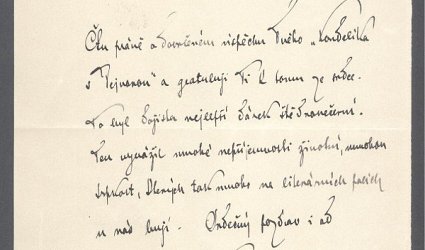 Čtu právě o dovršeném úspěchu Tvého „Kondelíka
s Vejvarou“ a gratuluji Ti k tomu ze srdce.
To byl zajisté nejlepší dárek štědrovečerní.
Ten vyvážil mnohé nepříjemnosti životní, mnohou
trpkost, kterých tak mnoho na literárních polích
u nás bují. Srdečný pozdrav i od